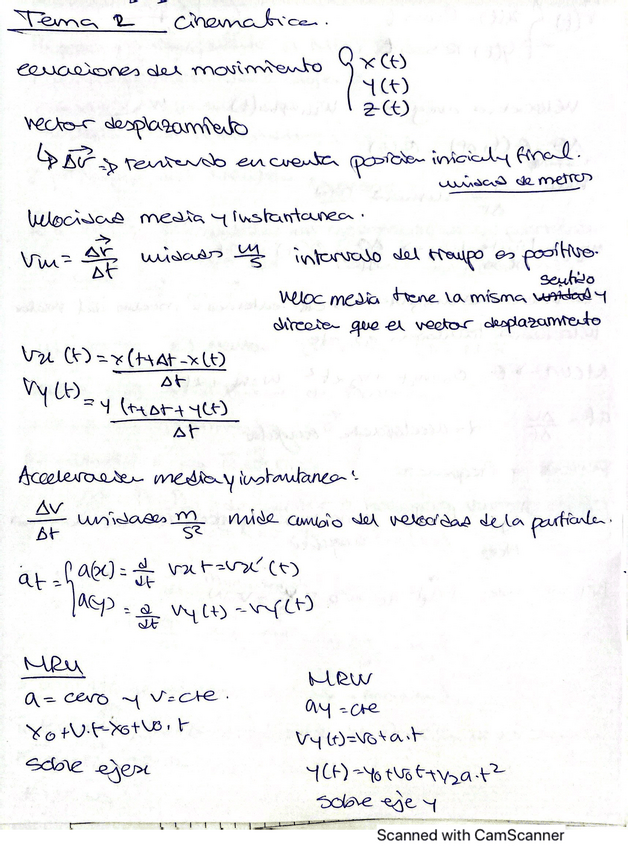 Tema 2 cinematica.
ecuaciones del movimiento { x(t)
y(t)
z(t)
vector desplazamiento
↳ Δr⃗ => teniendo en cuenta posicion inicial y final.
unidad de metros
Velocidad media y instantanea.
Vm = Δr⃗/Δt unidades m/s intervalo del tiempo es positivo.
Veloc media tiene la misma sentido y
direccion que el vector desplazamiento
Vx (t) = x(t+Δt - x(t) / Δt
Vy (t) = y (t+Δt + y(t) / Δt
Acceleracion media y instantanea:
Δv/Δt unidades m/s² mide cambio del velocidad de la particula.
at = { a(x) = d/dt Vx t = Vx' (t)
a(y) = d/dt Vy (t) = Vy'(t)
MRU
a = cero y v = cte.
x0 + v.t = x0 + v0.t
sobre eje x
MRUV
ay = cte
Vy (t) = V0 + a.t
y(t) = y0 + v0 t + 1/2 a.t²
sobre eje y
Scanned with CamScanner